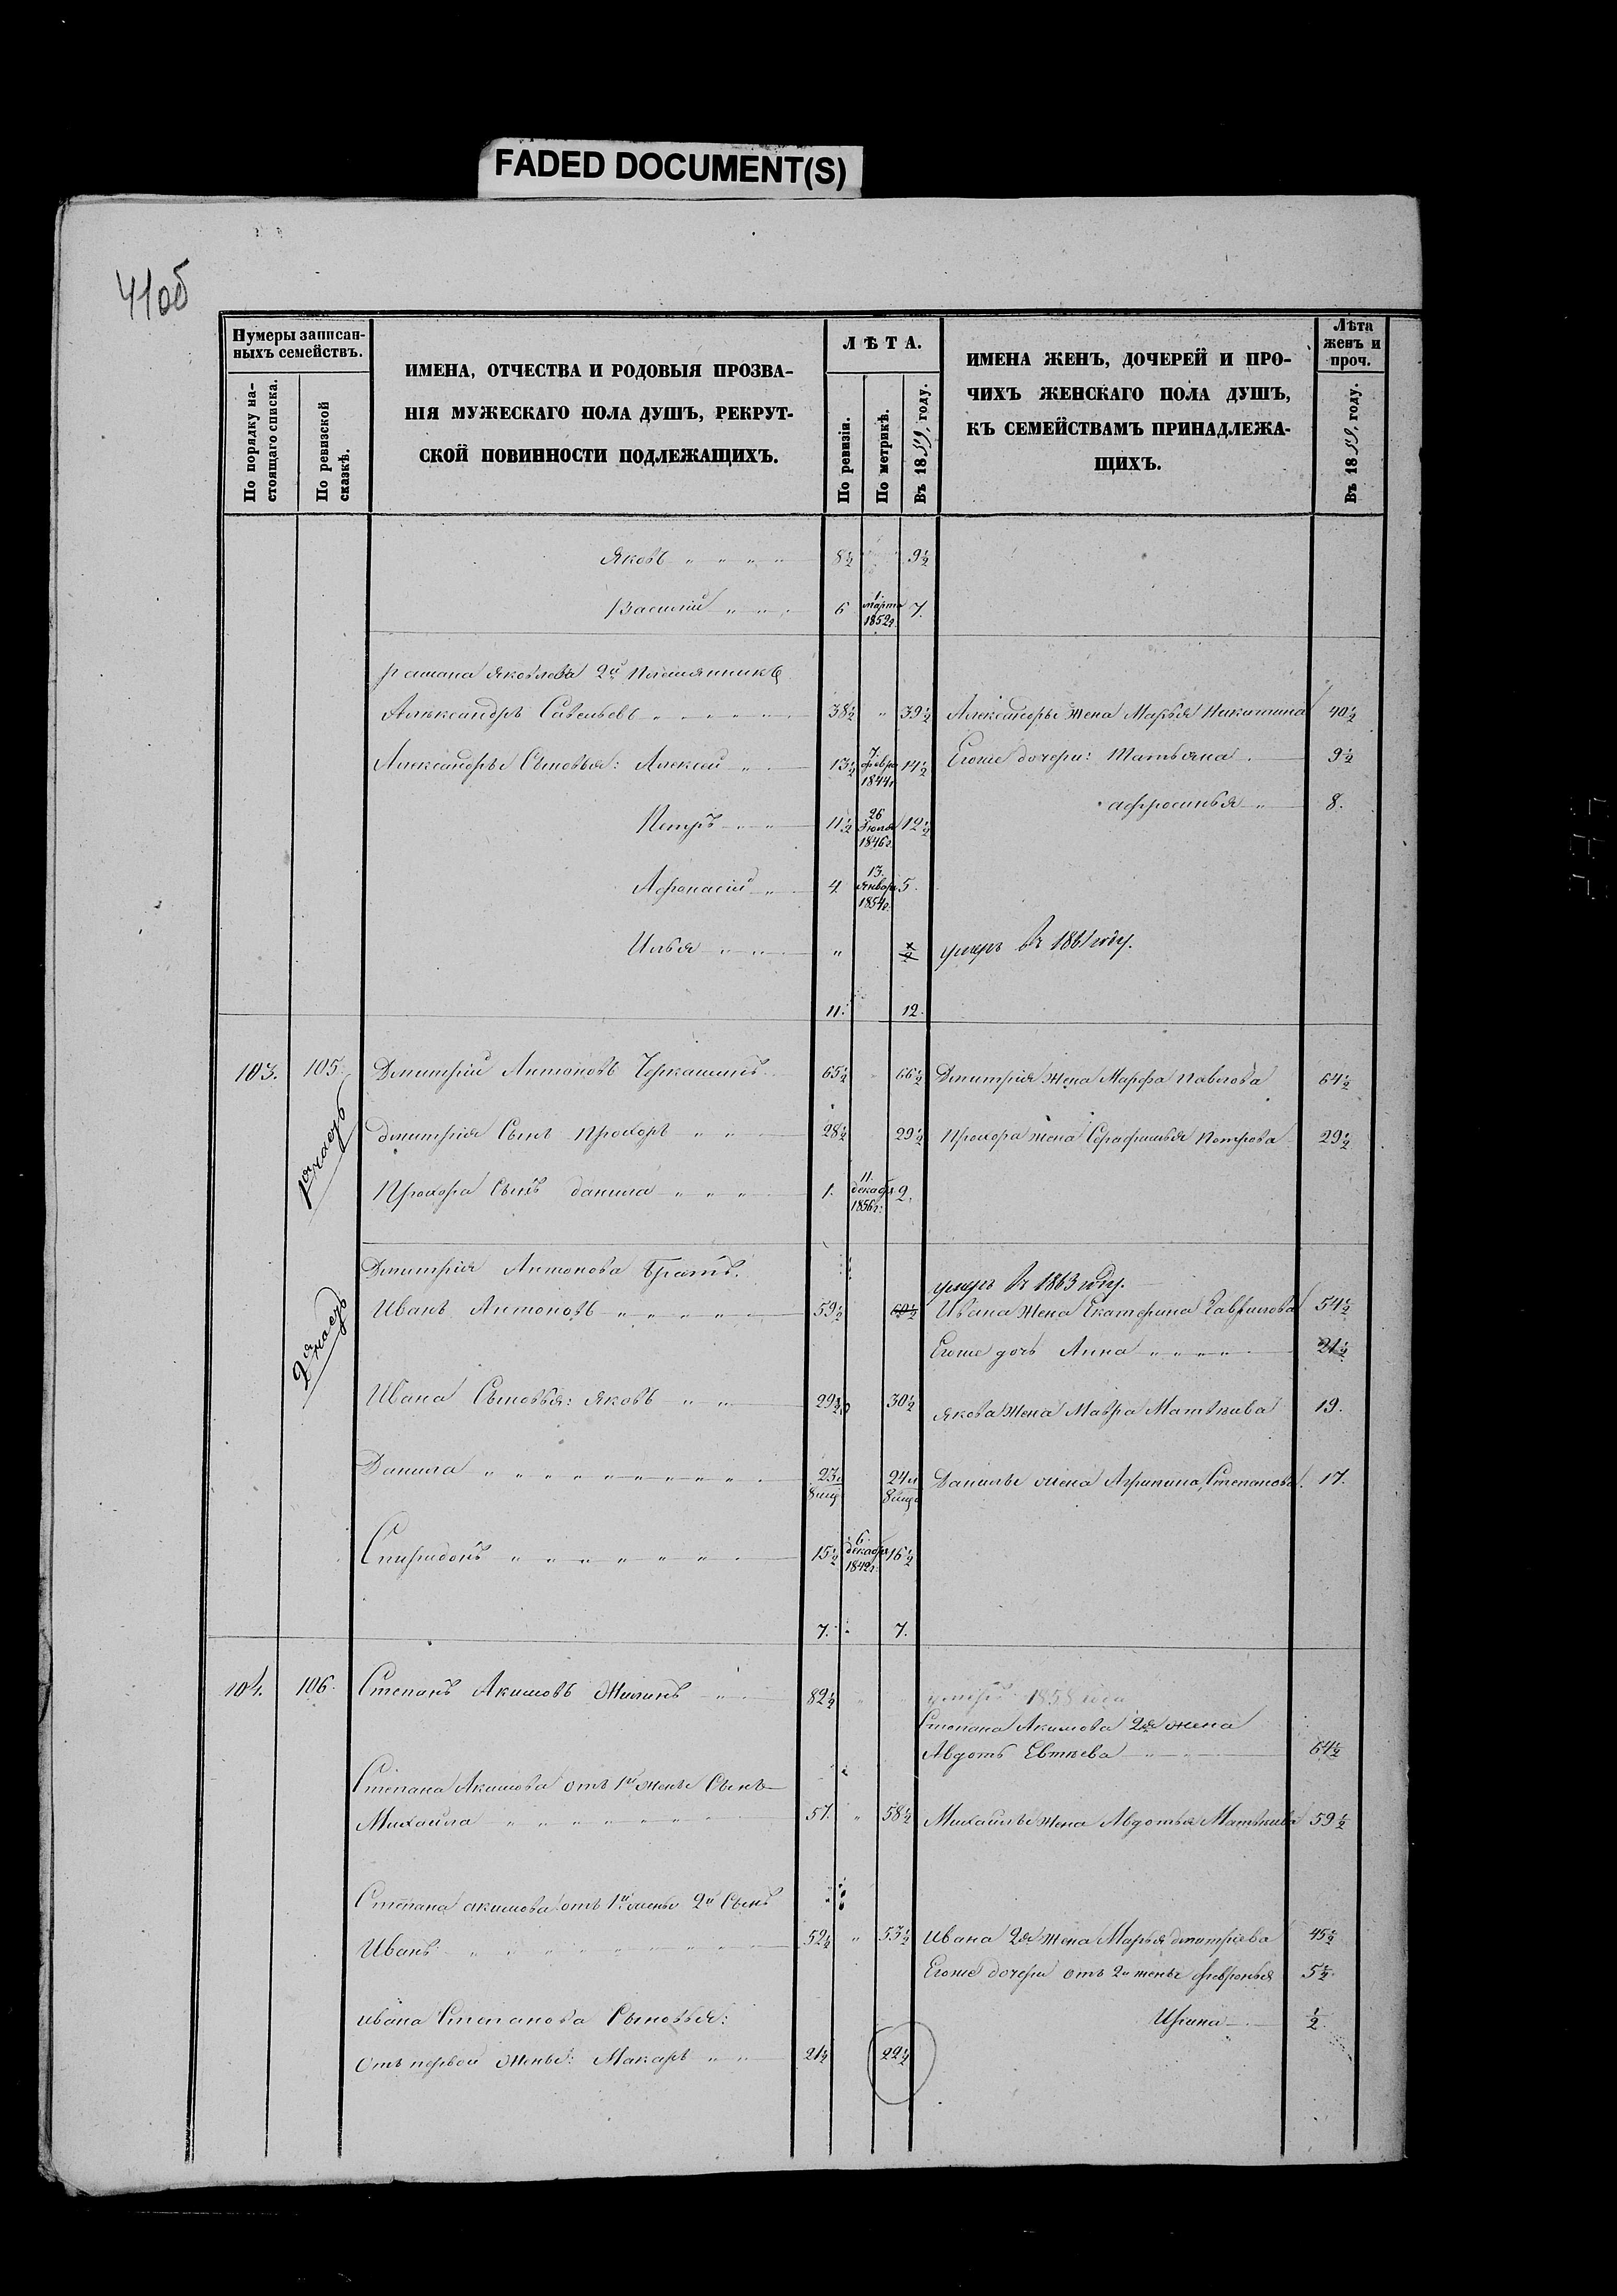 FADED DOCUMENT(S)
41об
Нумеры записан-
ныхъ семействъ.
По порядку на-
стоящаго списка.
По ревизской
сказкѣ.
ИМЕНА, ОТЧЕСТВА И РОДОВЫЯ ПРОЗВА-
НІЯ МУЖЕСКАГО ПОЛА ДУШЪ, РЕКРУТ-
СКОЙ ПОВИННОСТИ ПОДЛЕЖАЩИХЪ.
ЛѢТА.
По ревизіи.
По метрикѣ.
Въ 1859, году.
ИМЕНА ЖЕНЪ, ДОЧЕРЕЙ И ПРО-
ЧИХЪ ЖЕНСКАГО ПОЛА ДУШЪ,
КЪ СЕМЕЙСТВАМЪ ПРИНАДЛЕЖА-
ЩИХЪ.
Лѣта
женъ и
проч.
Въ 1859, году.
Яковъ " " " " 8½ 9½
Василій " " " 6 1 марта 1852г. 7.
рамана Яковлева 2й Племянникъ
Александръ Савельевъ " " " " " 38½ " 39½ Александры жена Марья Никитина 40½
Александры Сыновья: Алексей " 13½ 7 февра 1844г 14½ Егоже дочери: Татьяна 9½
афросинья " 8.
Петръ " " 11½ 26 Іюля 1846г. 12½
Афанасій " 4 13. Январ 1854г. 5.
Илья " " " " ½ умеръ въ 1861 году.
11. 12.
103. 105. Дмитрій Антоновъ Черкашинъ 65½ 66½ Дмитрія жена Марфа Павлова 64½
1я часть
дмитрія Сынъ Прохоръ " " 28½ 29½ Прохора жена Серафимья Петрова 29½
Прохора Сынъ данила " " " 1. 11. декабр 1856г. 2.
Дмитрія Антонова Братъ.
умеръ въ 1863 году.
2я часть
Иванъ Антоновъ " " " " " 59½ 60½ Ивана жена Екатерина Гаврилова 54½
Егоже дочь Анна " " " " 21½
Ивана Сыновья: Яковъ " " 29½ 30½ Якова жена Мавра Матвѣива 19.
Данила " " " " " " " " " " 23 8 24 8 Данилы жена Агрипина Степанова. 17.
Спиридонъ " " " " " " " 15½ 6. декабря 1842г. 16½
7. 7.
104. 106. Степанъ Акимовъ Жилинъ " " 82½
Степана Акимова 2я жена
Авдоть Евтиева " " 64½
Степана Акимова отъ 1й жены Сынъ
Михаила " " " " " " " 57. " 58½ Михаилы жена Авдотья Матвѣива 59½
Степана акимова отъ 1й жены 2й Сынъ
Иванъ " " " " " " " " " 52½ " 53½ Ивана 2я жена Марья дмитріева 45½
Егоже дочери отъ 2й жены февронья 5½
ивана Степанова Сыновья:
Ирина ½
Отъ первой жены: Макаръ " " 21½ 22½